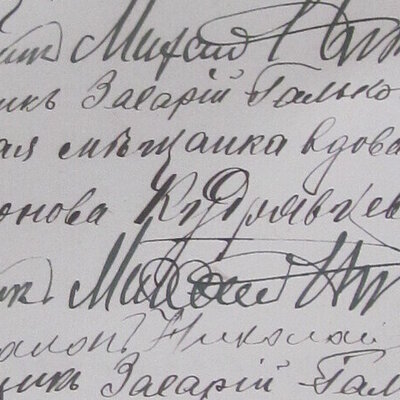 Михаил
икъ Захарій Галько
ая мѣщанка вдова
онова Кудрявцев
икъ Михаил
Николай
щикъ Захарій Гал